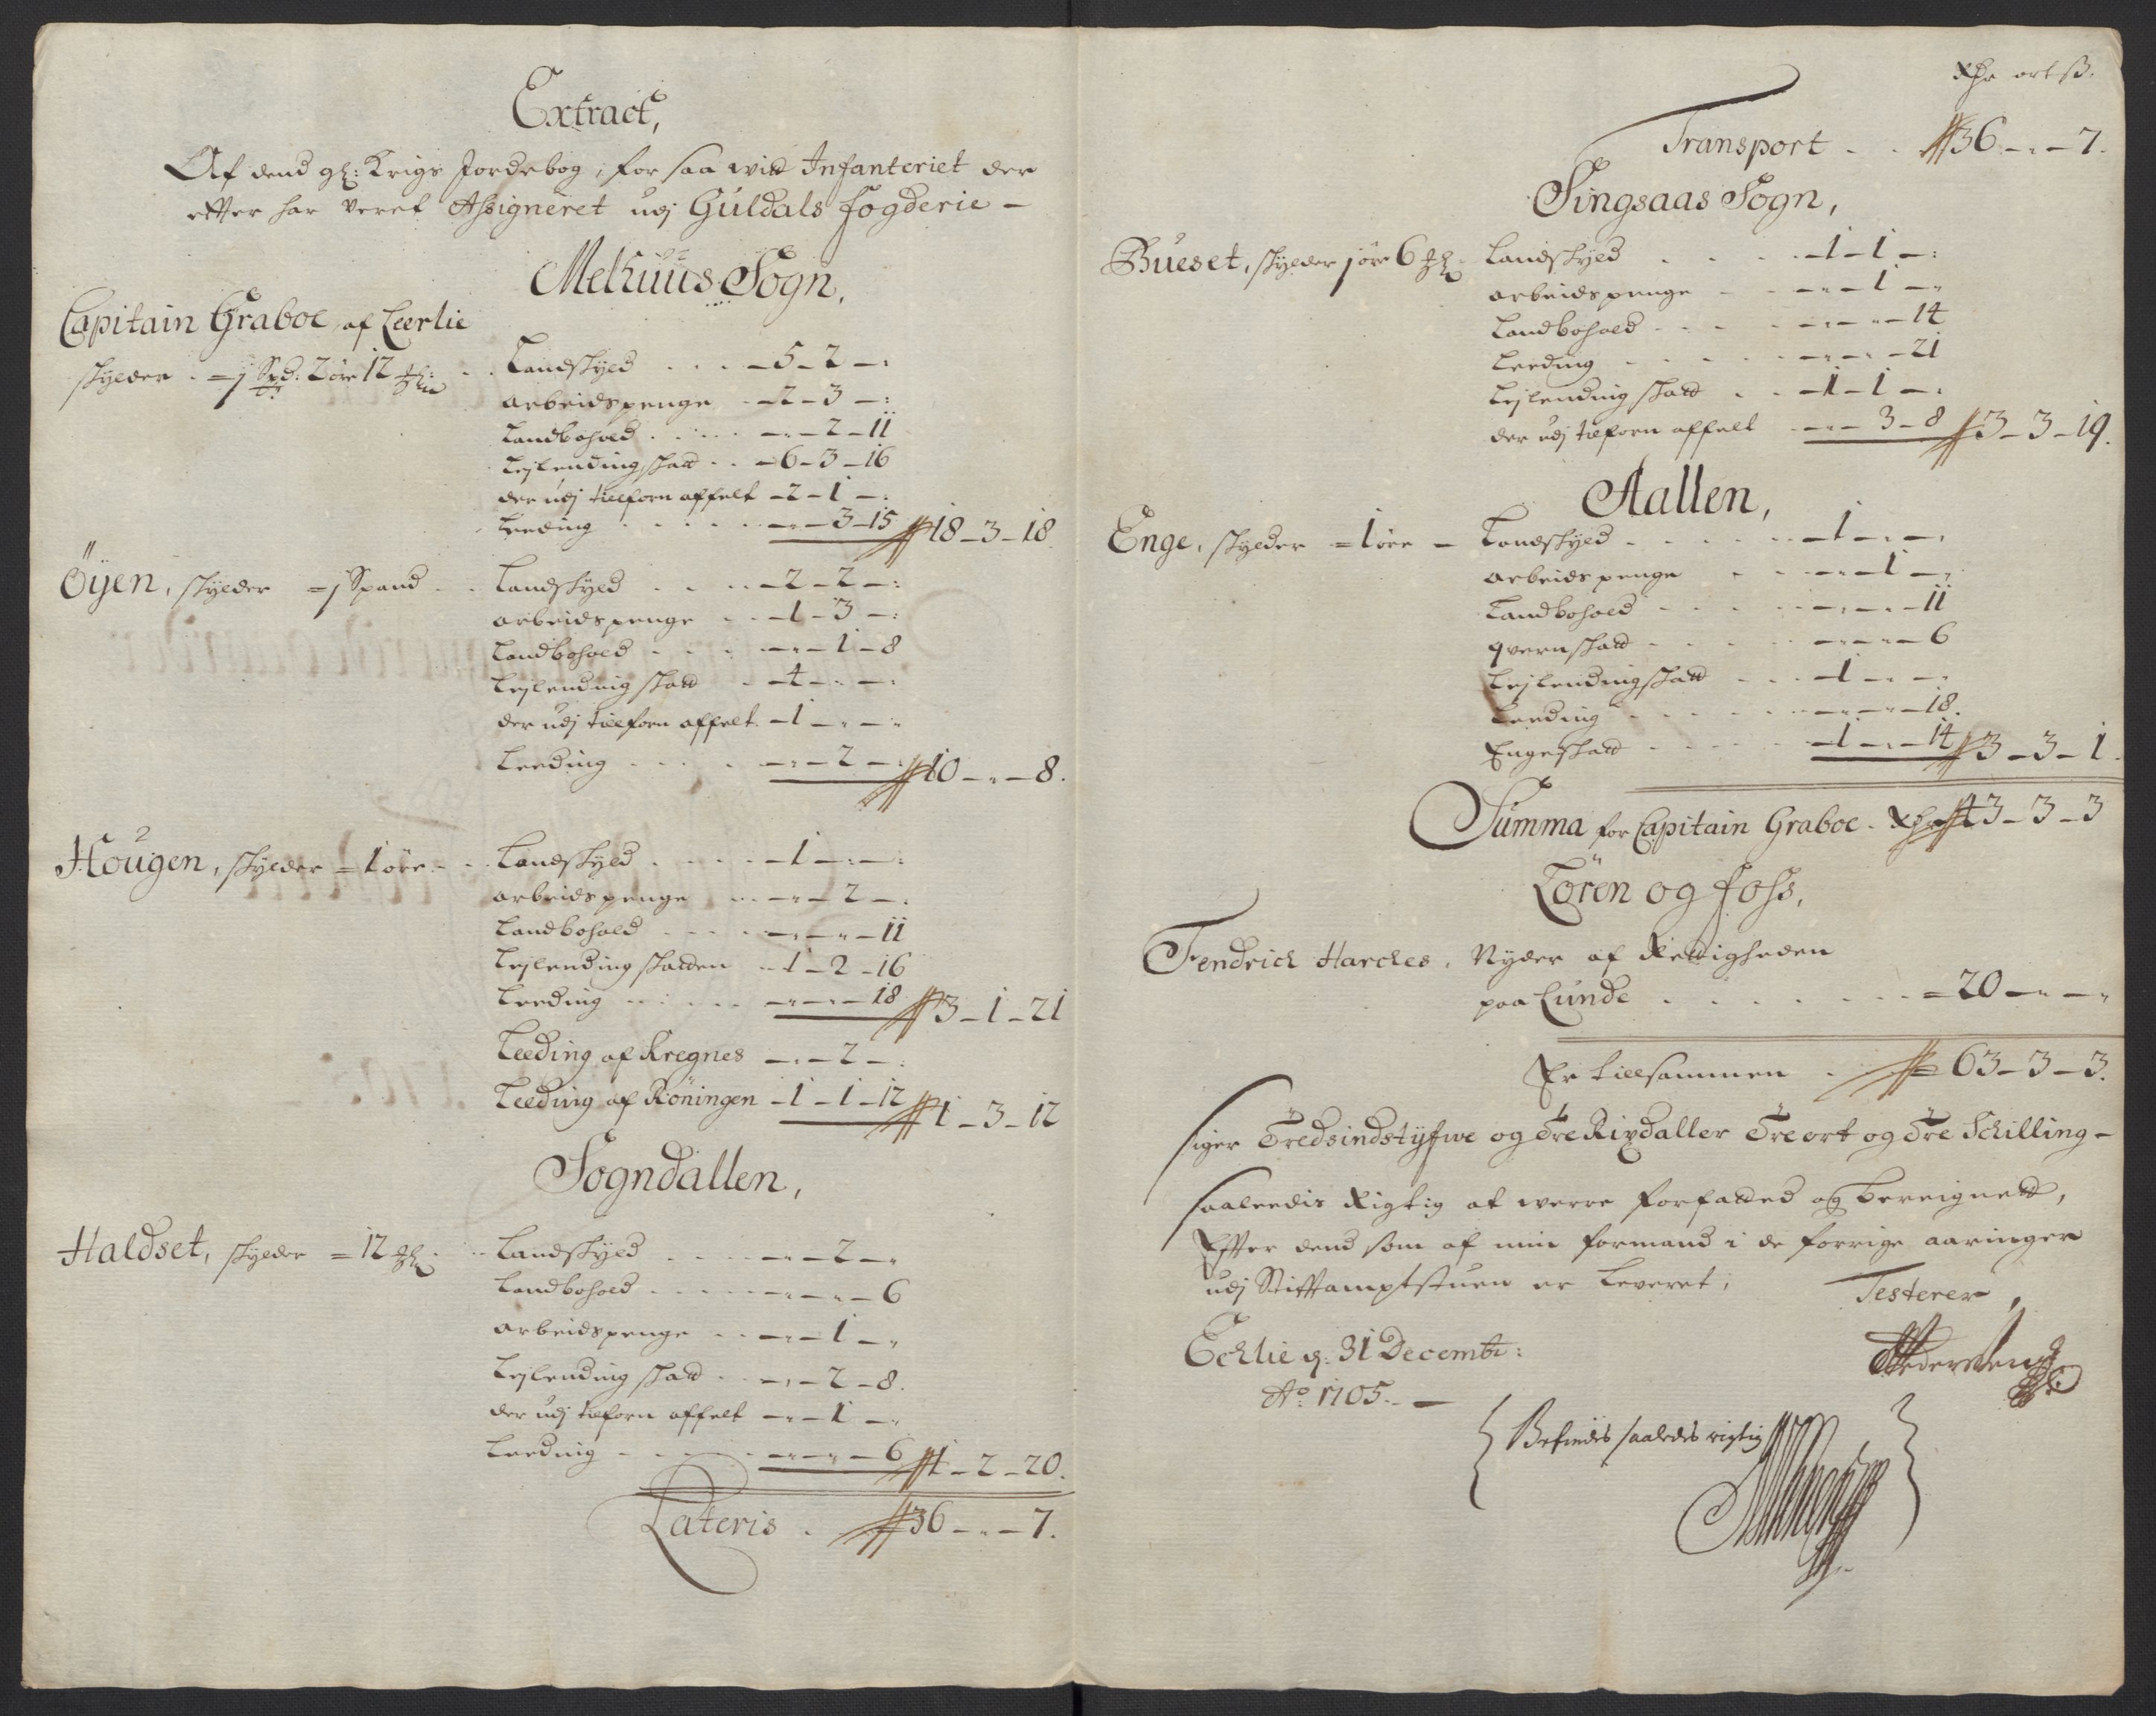 Extract,
Af dend gl: Krigs Jordebog, for saa witt Infanteriet der
effter har veret Assigneret udj Guldals fogderie –
Melhuus Sogn,
Capitain Graboe, af Leerlie
skylder . = 1 Spd: 2 øre 12
Landskyld . . . – 5 – 2 – :
arbeidspenge – 2 – 3 – :
Landbohold . . . – " – 2 – 11
Leilending skatt . . – 6 – 3 – 16
der udj tilforn affelt – 2 – 1 – :
Leeding . . . . – " – 3 – 15 18 – 3 – 18
Öyen, skylder = 1 Spand . .
Landskyld . . . – 2 – 2 – :
arbeidspenge . . – 1 – 3 – :
Landbohold . . . – " – 1 – 8
Leilending skatt . – 4 – " – :
der udj tilforn affelt. – 1 – " – "
Leeding . . . . – " – 2 – : 10 – " – 8.
Hougen, skylder = 1 øre – .
Landskyld . . . . – 1 – " – :
arbeidspenge . . . – " – 2 – :
Landbohold . . . . – " – " – 11
Leilending skatten – 1 – 2 – 16
Leeding . . . . – " – " – 18 3 – 1 – 21
Leeding af Kregnes – " – 2 – :
Leeding af Röningen – 1 – 1 – 12 1 – 3 – 12
Sogndallen,
Haldset, skylder = 12
Landskyld . . . – " – 2 – "
Landbohold . . . . – " – " – 6
arbeidspenge . . – " – 1 – "
Leilending skatt . . – " – 2 – 8.
der udj tilforn affelt – " – 1 – "
Leeding . . . . – " – " – 6 1 – 2 – 20.
Lateris . 36 – " – 7.
Rdr ort ß.
Transport . . 36 – " – 7.
Singsaas Sogn,
Bueset, skylder 1 øre 6
Landskyld . . . . – 1 – 1 – :
arbeidspenge . . – " – 1 – "
Landbohold . . . . – " – " – 14
Leeding . . . . – " – " – 21
Leilending skatt . . – 1 – 1 – :
der udj tilforn affelt – " – 3 – 8 3 – 3 – 19.
Aallen,
Enge, skylder = 1 øre –
Landskyld . . . . . – 1 – " – "
arbeidspenge . . – " – 1 – "
Landbohold . . . . – " – " – 11
qvernskatt . . . . – " – " – 6
Leilendingskatt . . . – 1 – " – "
Leeding . . . . . – " – " – 18.
Engeskatt . . . . – 1 – " – 14 3 – 3 – 1.
Summa for Capitain Graboe . Rdr 43 – 3 – 3
Tören og foss,
Fendrich Harches, Nyder af Rettigheden
paa Lunde . . . . . . = 20 – " – "
Er tillsammen . 63 – 3 – 3.
siger Tredsindstyfwe og Tre Rixdaller Tre ort og Tre Schilling –
saaleedis Rigtig at werre forfatted og bereignett,
Effter dend som af min formand i de forrige aaringer
udj Stifftamptstuen er Leveret;
Testerer,
Echlie d: 31 Decembr:
Ao 1705. –
Befindis saaledes rigtig